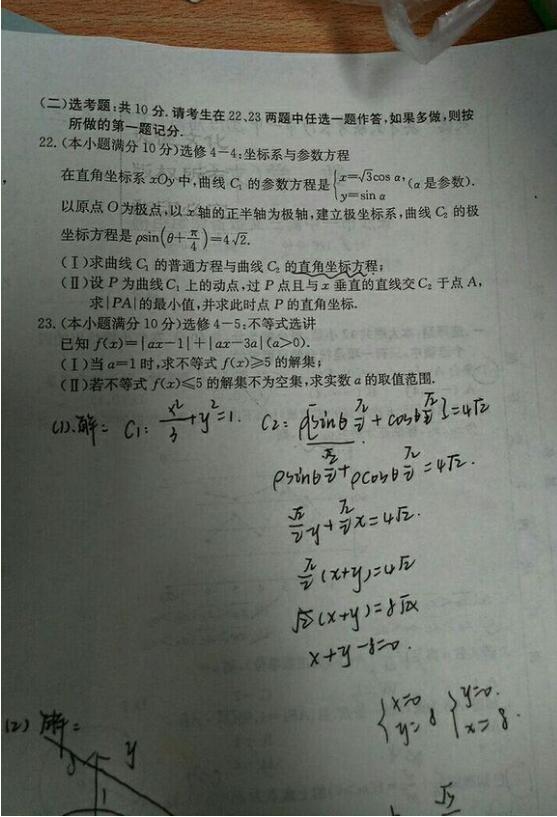 (二)选考题:共10分.请考生在22、23两题中任选一题作答,如果多做,则按
所做的第一题记分.
22.(本小题满分10分)选修4-4:坐标系与参数方程
在直角坐标系xOy中,曲线C₁的参数方程是{x=√3cos α, y=sin α (α是参数).
以原点O为极点,以x轴的正半轴为极轴,建立极坐标系,曲线C₂的极
坐标方程是ρsin(θ+π/4)=4√2.
(Ⅰ)求曲线C₁的普通方程与曲线C₂的直角坐标方程;
(Ⅱ)设P为曲线C₁上的动点,过P点且与x垂直的直线交C₂于点A,
求|PA|的最小值,并求此时点P的直角坐标.
23.(本小题满分10分)选修4-5:不等式选讲
已知f(x)=|ax-1|+|ax-3a|(a>0).
(Ⅰ)当a=1时,求不等式f(x)≥5的解集;
(Ⅱ)若不等式f(x)≤5的解集不为空集,求实数a的取值范围.
(1).解: C₁: x²/3+y²=1. C₂: ρ[sinθ √2/2 + cosθ √2/2]=4√2
ρsinθ √2/2 + ρcosθ √2/2 =4√2.
√2/2 y+√2/2 x=4√2.
√2/2 (x+y)=4√2
√2(x+y)=8√2
x+y-8=0.
{x=0 y=8 {y=0. x=8.
(2) 解:
8 y
1